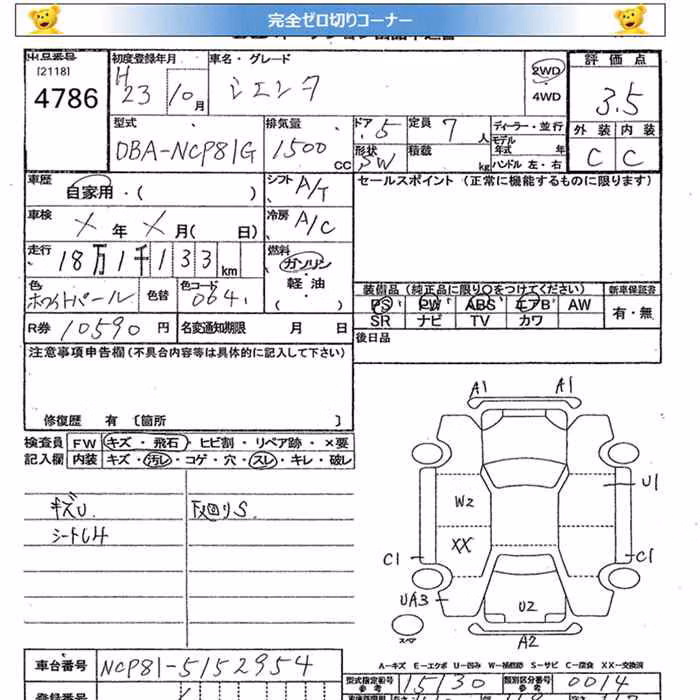 完全ゼロ切りコーナー
出品番号 [2118] 4786
初度登録年月 H23 10月
車名・グレード シエンタ
2WD
4WD
評価点 3.5
外装 内装
C C
型式 DBA-NCP81G
排気量 1500 CC
ドア 5
形状 SW
定員 7 人
積載 kg
ディーラー・並行
モデル年式 年
ハンドル 左・右
車歴 自家用・( )
シフト A/T
セールスポイント (正常に機能するものに限ります)
車検 X年X月( 日)
冷房 A/C
走行 18万1千133km
燃料 ガソリン・軽油・( )
色 ホワイトパール 色替 色コード 064
装備品 (純正品に限り○をつけてください) 新車保証書
PS PW ABS エアB AW 有・無
SR ナビ TV カワ
R券 10590円 名変通知期限 月 日
後日品
注意事項申告欄(不具合内容等は具体的に記入して下さい)
修復歴 有 〔箇所 〕
検査員 FW キズ・飛石・ヒビ割・リペア跡・×要
記入欄 内装 キズ・汚レ・コゲ・穴・スレ・キレ・破レ
キズU 下廻りS
シートU4
A1 A1
U1
W2
XX
C1 C1
UA3
U2
スペア
A2
A-キズ E-エクボ U-凹み W-補修跡 S-サビ C-腐食 XX-交換済
車台番号 NCP81-5152954
型式指定番号 参考 15130 類別区分番号 参考 0014
登録番号